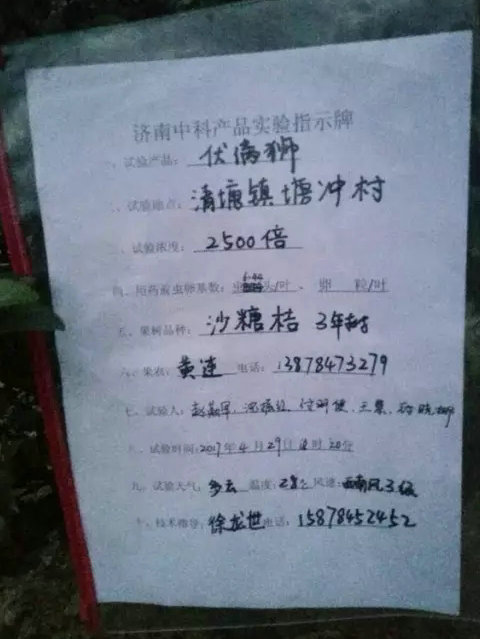 济南中科产品实验指示牌
一、试验产品：伏满狮
二、试验地点：清塘镇塘冲村
三、试验浓度：2500倍
四、施药前虫卵基数：头/叶、卵 粒/叶
五、果树品种：沙糖桔 3年树
六、果农：黄连 电话：13878473279
七、试验人：王
八、试验时间：2017年4月29日 时20分
九、试验天气：多云 温度：28℃ 风速：西南风3级
十、技术指导：徐龙世 电话：15878452452